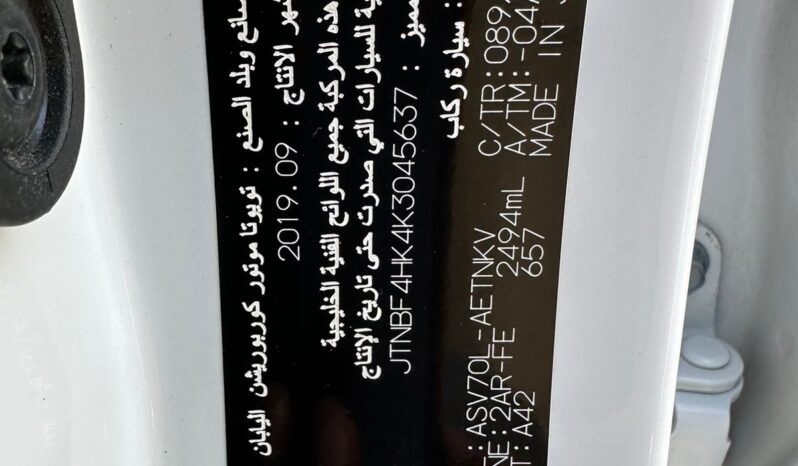 صانع وبلد الصنع : تويوتا موتور كوربوريشن اليابان
شهر الانتاج : 2019.09
هذه المركبة جميع اللوائح الفنية الخليجية
ية للسيارات التي صدرت حتى تاريخ الإنتاج
مميز : JTNBF4HK4K3045637
: سيارة ركاب
: ASV70L-AETNKV C/TR:089
NE:2AR-FE 2494mL A/TM:-04A
T:A42 657 MADE IN